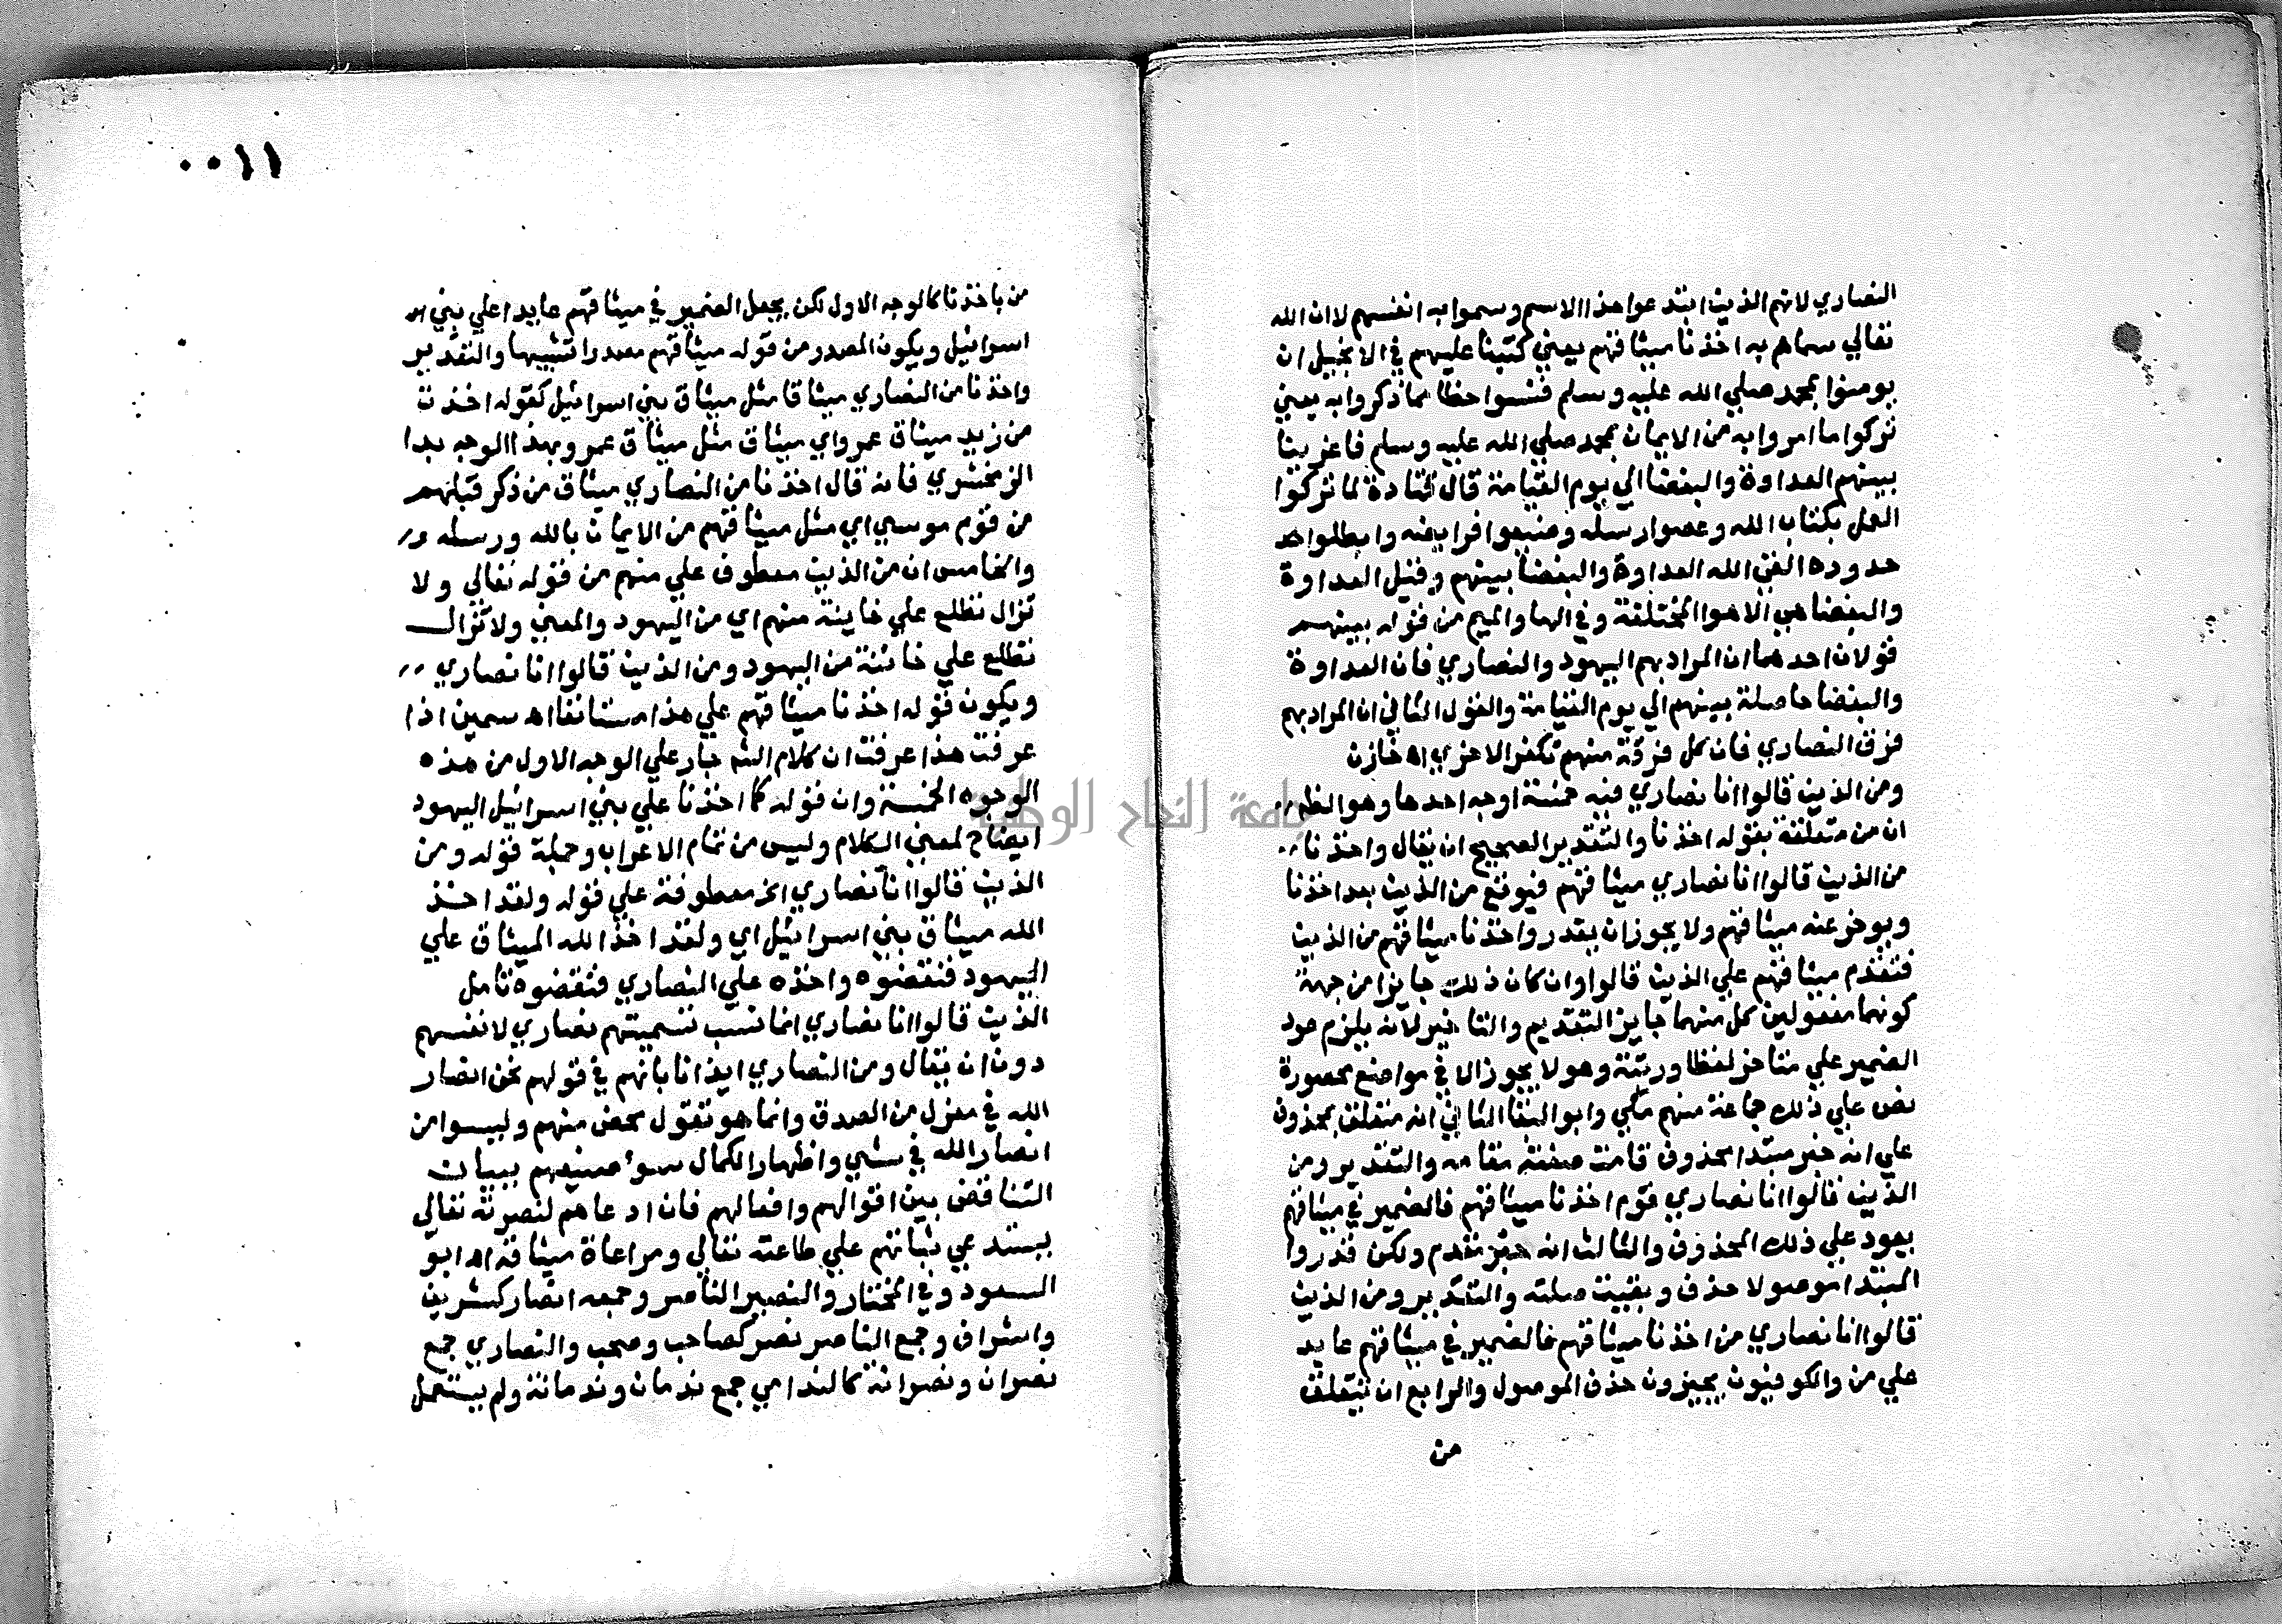 النصاري لانهم الذين ابتدعوا هذا الاسم وسموا به انفسهم لا ان الله
تعالي سماهم به اخذنا ميثاقهم يعني كتبنا عليهم في الانجيل ان
يومنوا بمحمد صلي الله عليه وسلم فنسوا حظا مما ذكروا به يعني
تركوا ما امروا به من الايمان بمحمد صلي الله عليه وسلم فاغرينا
بينهم العداوة والبغضا الي يوم القيامة قال قتادة لما تركوا
العمل بكتاب الله وعصوا رسله وضيعوا فرايضه وابطلوا حد
حدوده القي الله العداوة والبغضا بينهم وقيل العداوة
والبغضا هي الاهوا المختلفة وفي الها والميم من قوله بينهم
قولان احدهما ان المراد بهم اليهود والنصاري فان العداوة
والبغضا حاصلة بينهم الي يوم القيامة والقول الثاني ان المراد بهم
فرق النصاري فان كل فرقة منهم تكفر الاخري اه خازن
ومن الذين قالوا انا نصاري فيه خمسة اوجه احدها وهو الظ
ان من متعلقة بقوله اخذنا والتقدير الصحيح ان يقال واخذنا
من الذين قالوا انا نصاري ميثاقهم فيوقع من الذين بعد اخذنا
ويوخر عنه ميثاقهم ولا يجوز ان يقدر واخذنا ميثاقهم من الذين
فتقدم ميثاقهم علي الذين قالوا وان كان ذلك جايزا من جهة
كونهما مفعولين كل منهما جايز التقديم والتاخير لانه يلزم عود
الضمير علي متاخر لفظا ورتبة وهو لا يجوز الا في مواضع محصورة
نص علي ذلك جماعة منهم مكي وابو البقا الثاني انه متعلق بمحذوف
علي انه خبر مبتدا محذوف قامت صفته مقامه والتقدير ومن
الذين قالوا انا نصاري قوم اخذنا ميثاقهم فالضمير في ميثاقهم
يعود علي ذلك المحذوف والثالث انه خبر مقدم ولكن قدروا
المبتدا موصولا حذف وبقيت صلته والتقدير ومن الذين
قالوا انا نصاري من اخذنا ميثاقهم فالضمير في ميثاقهم عايد
علي من والكوفيون يجيزون حذف الموصول والرابع ان تتعلق
من
٠٠١١
من باخذنا كالوجه الاول لكن يجعل الضمير في ميثاقهم عايدا علي بني ا
اسرائيل ويكون المصدر من قوله ميثاقهم مصدرا تشبيها والتقدير
واخذنا من النصاري ميثاقا مثل ميثاق بني اسرائيل كقوله اخذت
من زيد ميثاق عمرو اي ميثاق مثل ميثاق عمرو وبهذا الوجه بدا
الزمخشري فانه قال اخذنا من النصاري ميثاق من ذكر قبلهم
من قوم موسي اي مثل ميثاقهم من الايمان بالله ورسله
والخامس ان من الذين معطوف علي منهم من قوله تعالي ولا
تزال تطلع علي خاينة منهم اي من اليهود والمعني ولا تزال
تطلع علي خائنة من اليهود ومن الذين قالوا انا نصاري
ويكون قوله اخذنا ميثاقهم علي هذا مستانفا اه سمين اذا
عرفت هذا عرفت ان كلام الش جار علي الوجه الاول من هذه
الوجوه الخمسة وان قوله كما اخذنا علي بني اسرائيل اليهود
ايضاح لمعني الكلام وليس من تمام الاعراب وجملة قوله ومن
الذين قالوا انا نصاري الخ معطوفة علي قوله ولقد اخذ
الله ميثاق بني اسرائيل اي ولقد اخذ الله الميثاق علي
اليهود فنقضوه واخذه علي النصاري فنقضوه تامل
الذين قالوا انا نصاري انما نسب تسميتهم نصاري لانفسهم
دون ان يقال ومن النصاري ايذانا بانهم في قولهم نحن انصار
الله في معزل من الصدق وانما هو تقول محض منهم وليسوا من
انصار الله في شي واظهارا لكمال سوء صنيعهم ببيان
التناقض بين اقوالهم وافعالهم فان ادعاهم لنصرته تعالي
يستدعي ثباتهم علي طاعته تعالي ومراعاة ميثاقه اه ابو
السعود وفي المختار والنصير الناصر وجمعه انصار كشريف
واشراف وجمع الناصر نصر كصاحب وصحب والنصاري جمع
نصران ونصرانة كالندامي جمع ندمان وندمانة ولم يستعمل
جامعة النجاح الوطنية